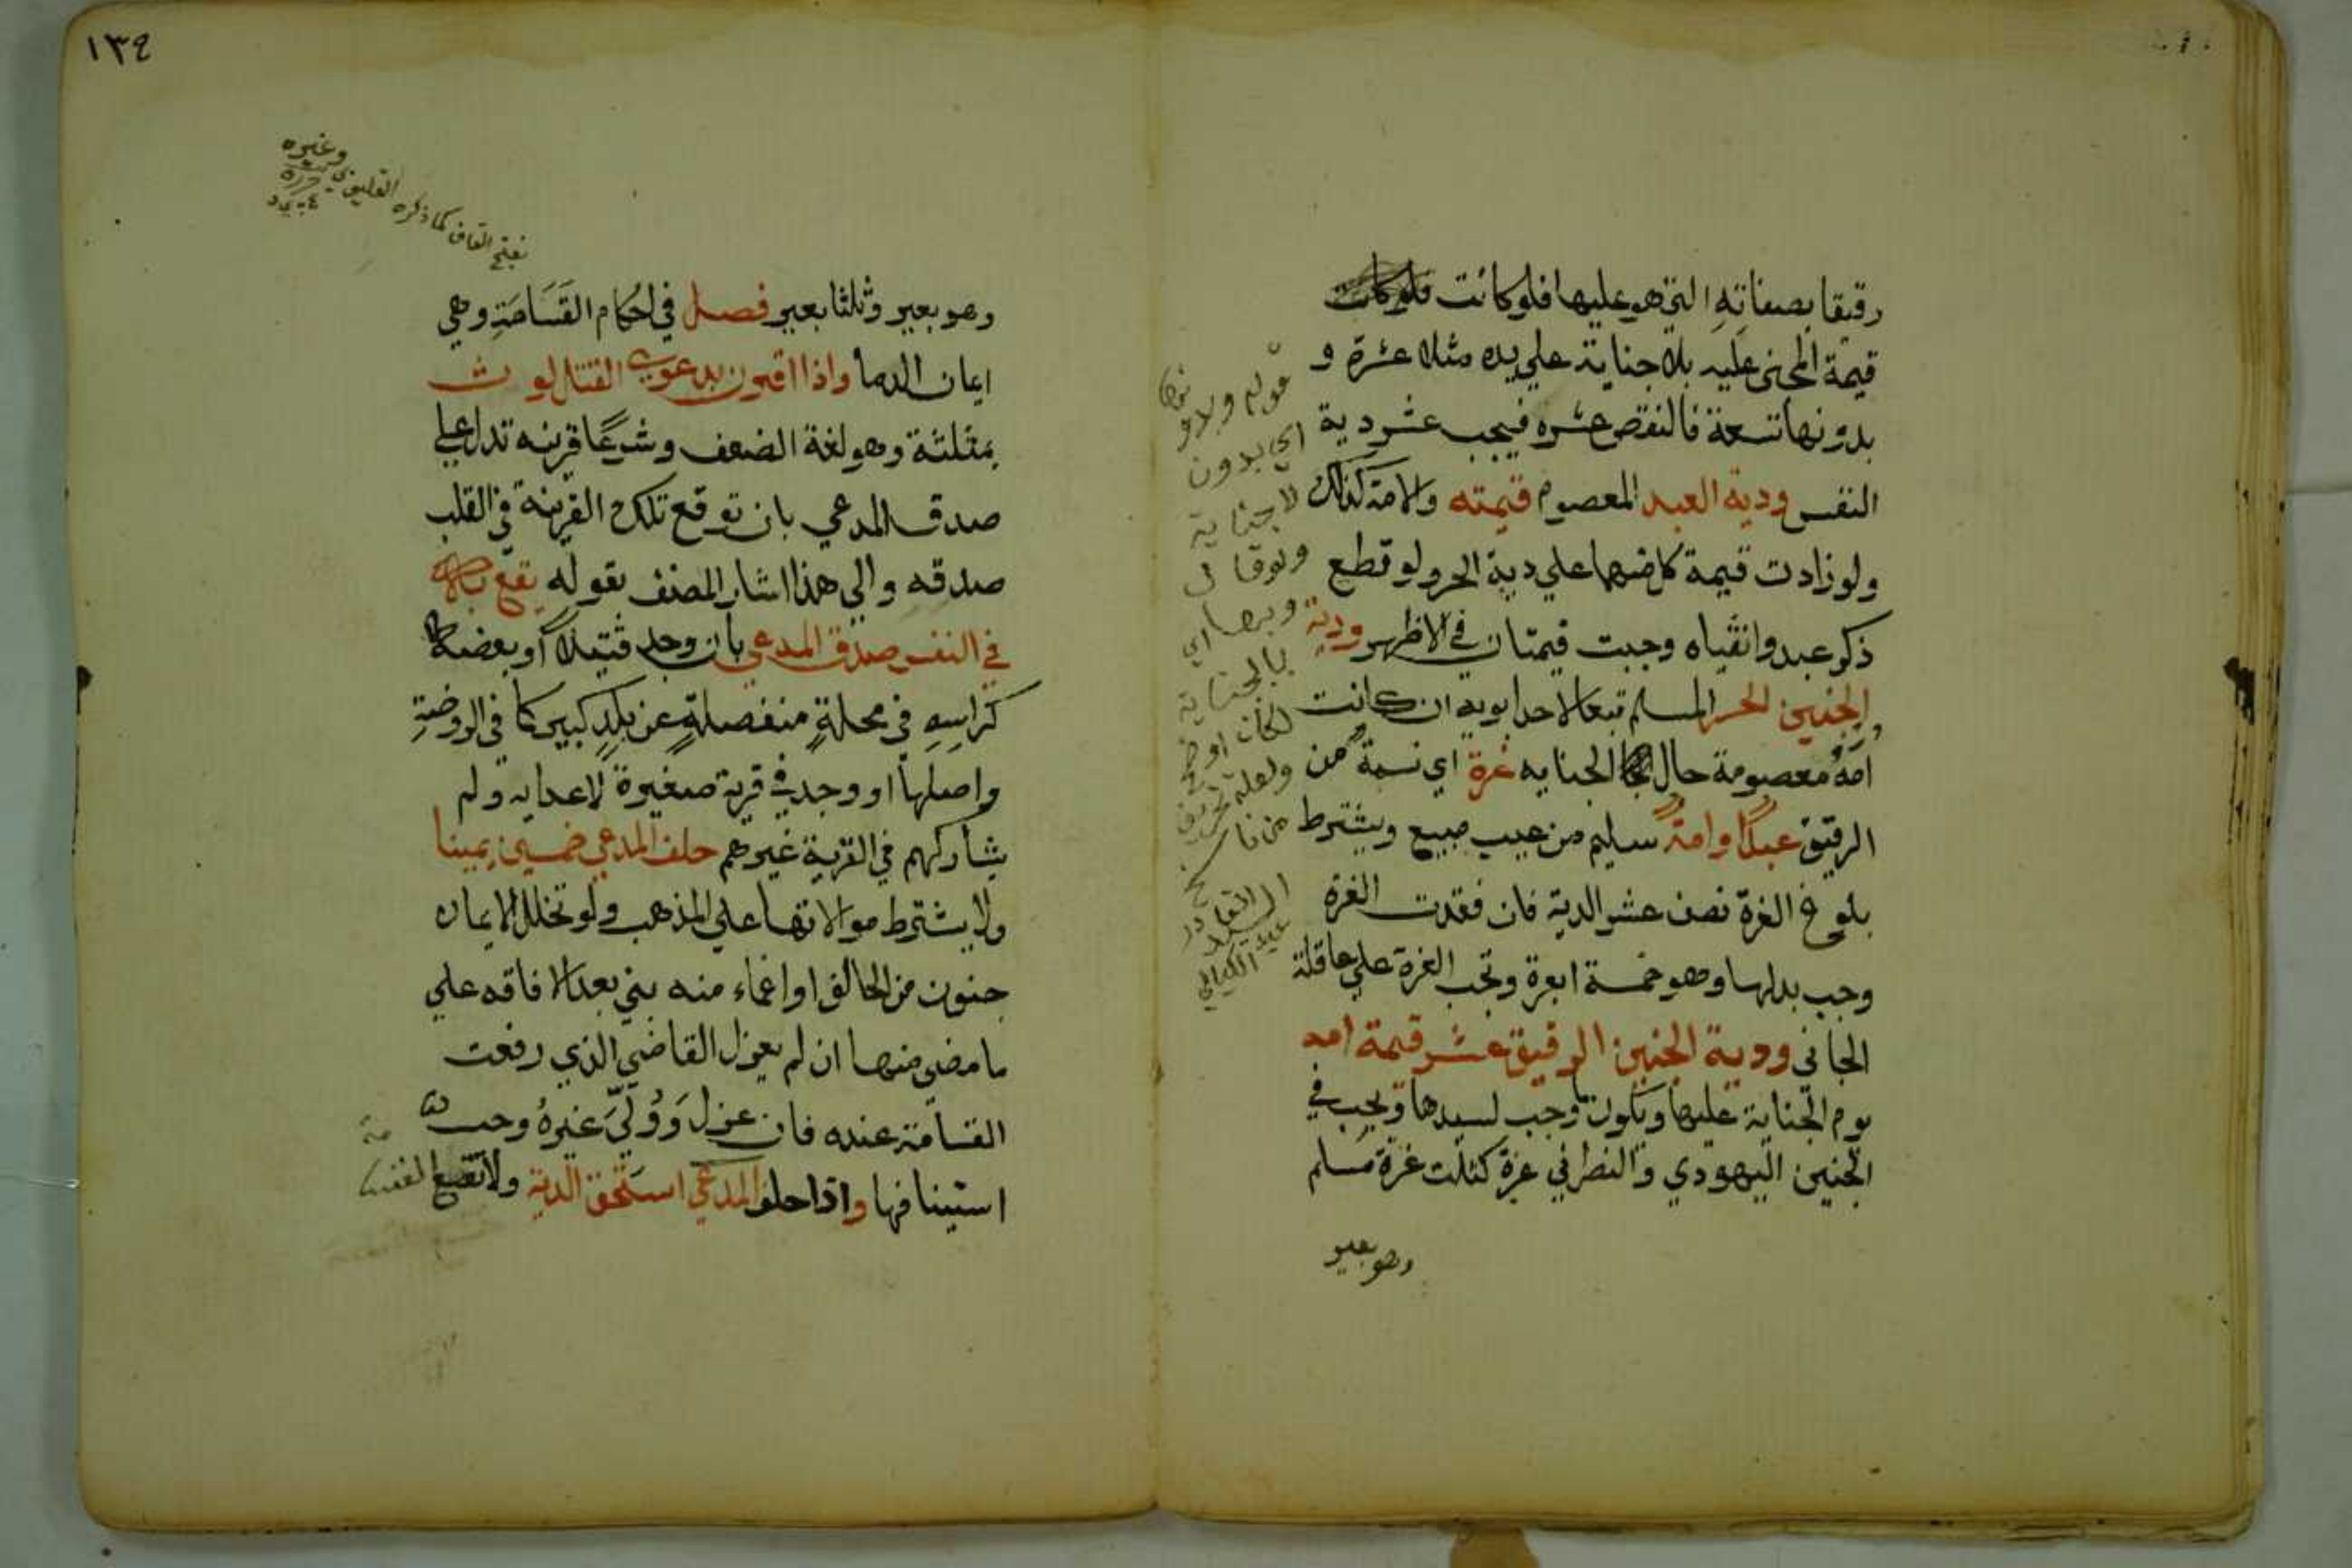 رقيقا بصفاته التي هو عليها فلو كانت فلو كانت
قيمة المجني عليه بلا جناية علي يده مثلا عشرة و
بدونها تسعة فالنقص عشره فيجب عشر دية
النفس ودية العبد المعصوم قيمته والامة كذلك
ولو زادت قيمة كل منهما علي دية الحر ولو قطع
ذكر عبد وانثياه وجبت قيمتان في الاظهر ودية
الجنين الحر المسلم تبعا لاحد ابويه ان كانت
امه معصومة حال الجنايه غرة اي نسمة من
الرقيق عبدًا وامةً سليم من عيب مبيع ويشترط
بلوغ الغرة نصف عشر الدية فان فقدت الغرة
وجب بدلها وهو خمسة ابعرة وتجب الغرة علي عاقلة
الجاني ودية الجنين الرقيق عشر قيمة امه
يوم الجناية عليها ويكون ما وجب لسيدها ويجب في
الجنين اليهودي والنصراني غرة كثلث غرة مسلم
وهو بعير
قوله وبلا
اي بدون
لا جناية
ولو قال
وبها اي
بالجناية
لكان اوضح
ولعله تحريف
من ناسخ
١٣٤
بفتح القاف كما ذكره القليوبي وغيره
وهو بعير وثلثا بعير فصل في احكام القَسَامَةِ وهي
ايمان الدما واذا اقترن بدعوي القتل لوث
بمثلثة وهو لغة الضعف وشرعًا قرينه تدل علي
صدق المدعي بان توقع تلك القرينة في القلب
صدقه والي هذا اشار المصنف بقوله يقع به
في النفس صدق المدعي بان وجد قتيلا او بعضه
كراسِهِ في محلةٍ منفصلةٍ عن بلدٍ كبير كما في الروضةِ
واصلها او وجد في قرية صغيرة لاعدايه ولم
يشاركهم في القرية غيرهم حلف المدعي خمسين يمينا
ولا يشترط موالاتها علي المذهب ولو تخلل الايمان
جنون من الحالف او اغماء منه بني بعد الافاقه علي
ما مضي منها ان لم يعزل القاضي الذي رفعت
القسامة عنده فان عزل وَوُلِّيَ غيرهُ وجب
استينافها واذا حلف المدعي استحق الدية ولا تقع القسامة